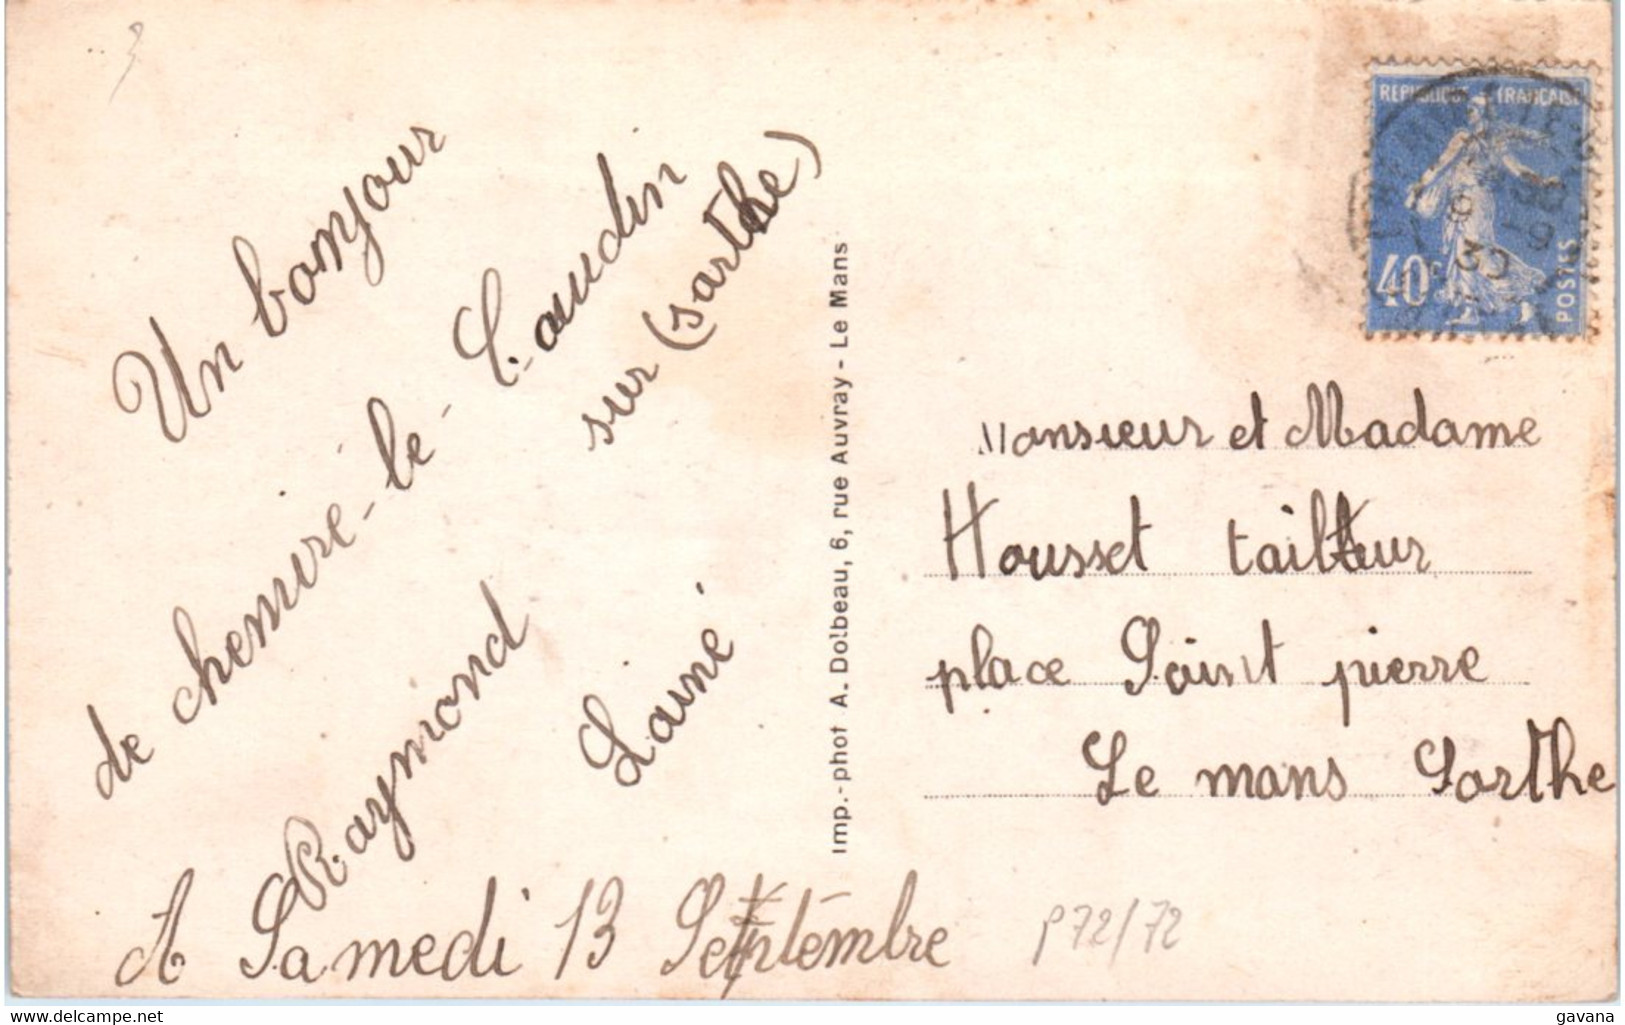 3
Un bonjour
de chemiré-lé-Gaudin
sur (sarthe)
Raymond Lainé
A Samedi 13 Septémbre
Imp.-phot A. Dolbeau, 6, rue Auvray - Le Mans
REPUBLIQUE FRANÇAISE
40c
POSTES
Monsieur et Madame
Housset tailleur
place Saint pierre
Le mans Sarthe
P72/72
www.delcampe.net
gavana